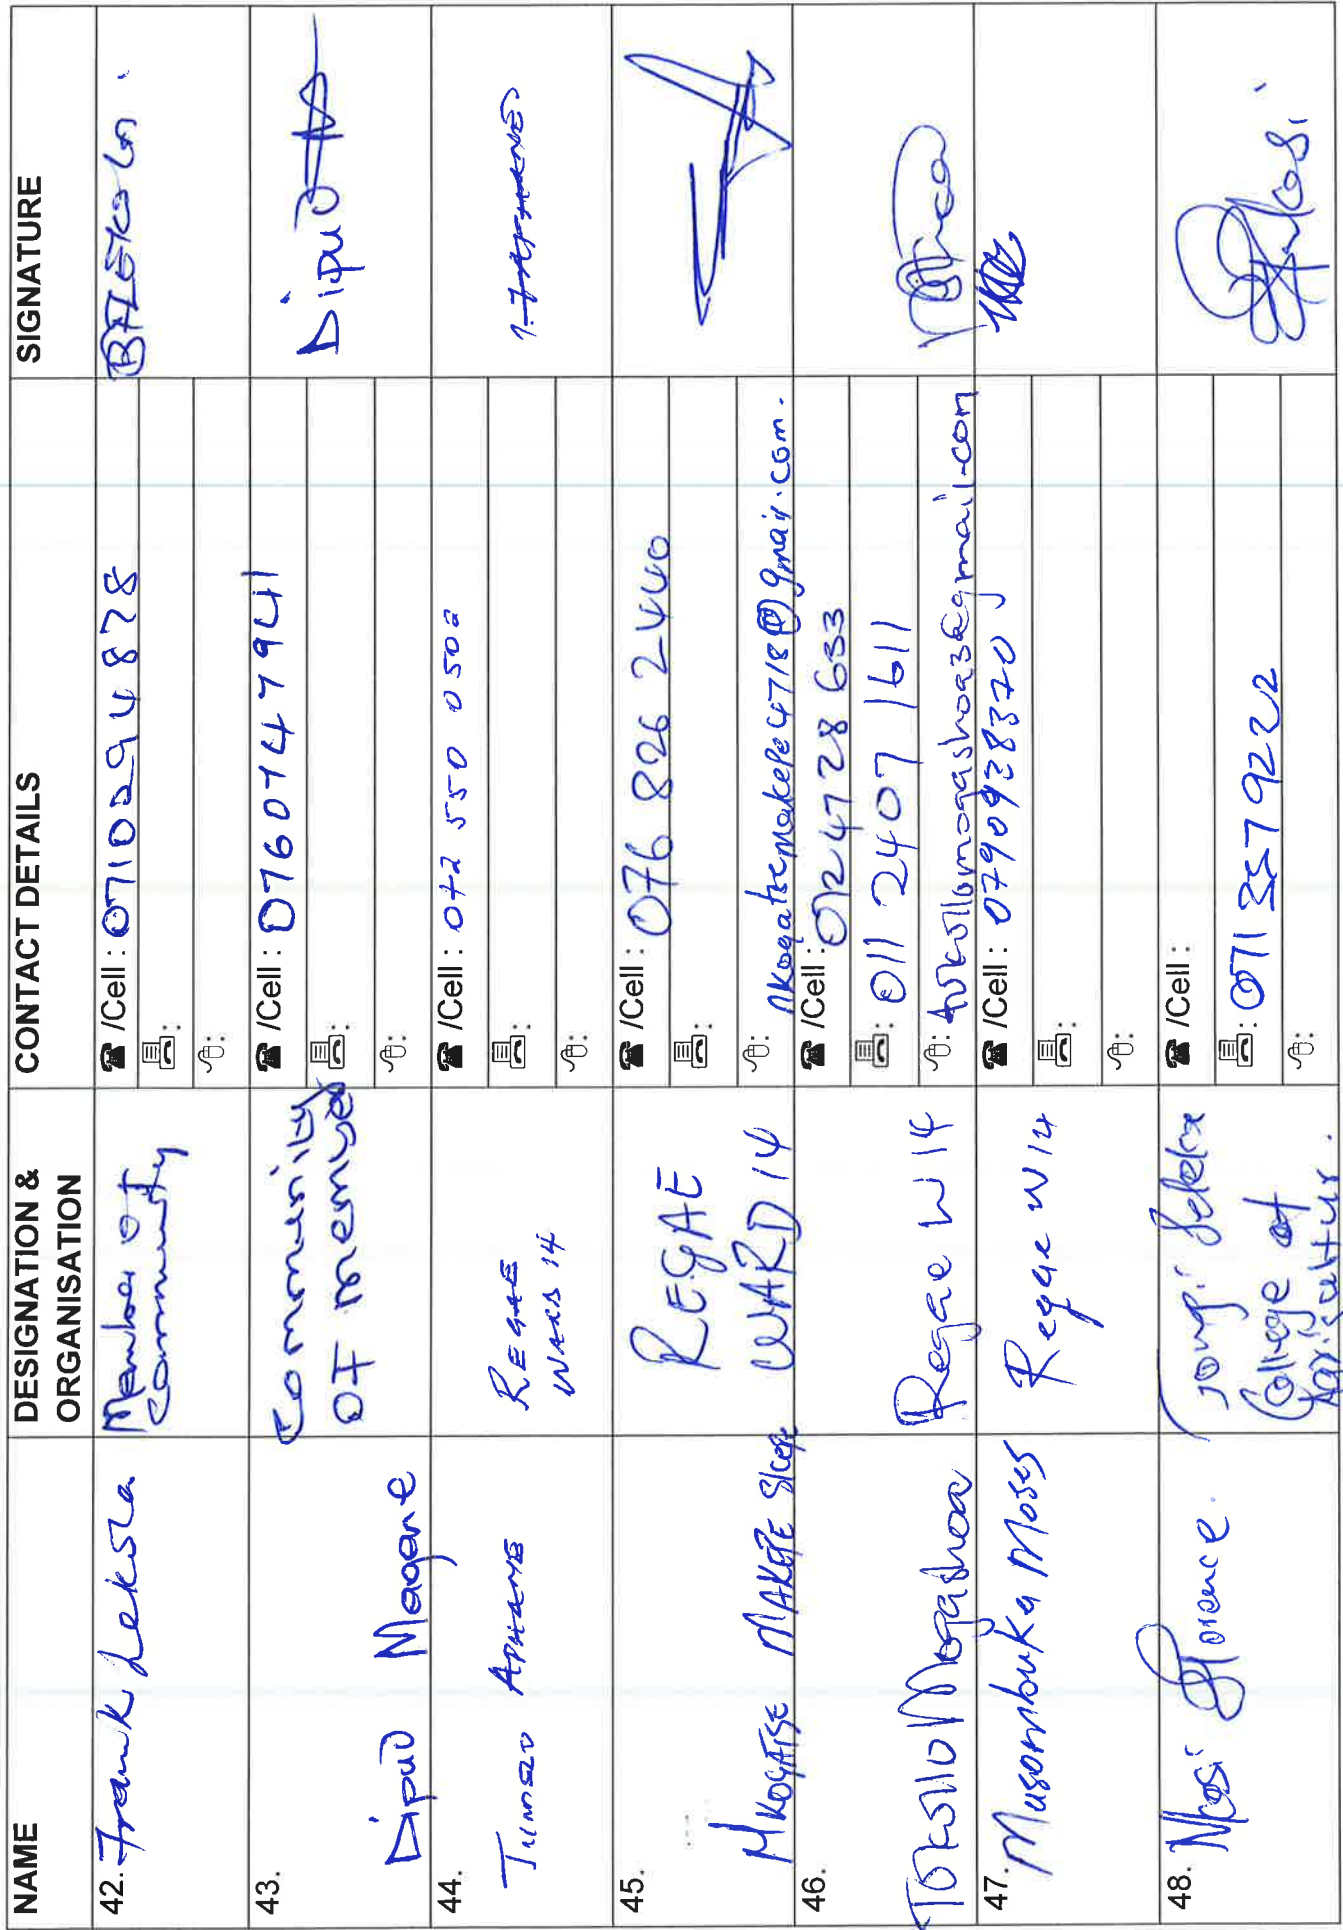 NAME
DESIGNATION &
ORGANISATION
CONTACT DETAILS
SIGNATURE
42. Frank Lekola
Member of
Community
/Cell : 0710294878
:
:
43.
Dipuo Magane
Community
Of
/Cell : 0760747941
:
:
Dipuo
44.
Tumelo Aphane
REGAE
WARD 14
/Cell : 072 550 0502
:
:
45.
NKOGATSE MAKEPE
REGAE
WARD 14
/Cell : 076 826 2440
:
: nkogatsemakepe4718@gmail.com.
46.
Tokollo Mogashoa
Regae W 14
/Cell : 0724728633
: 011 2407 1611
: tokollomogashoa3@gmail.com
47. Masombuka Moses
Regae W 14
/Cell : 0790928370
:
:
48. Nkosi Florence.
College of
Agricultur.
/Cell :
: 0713579222
:
Nkosi